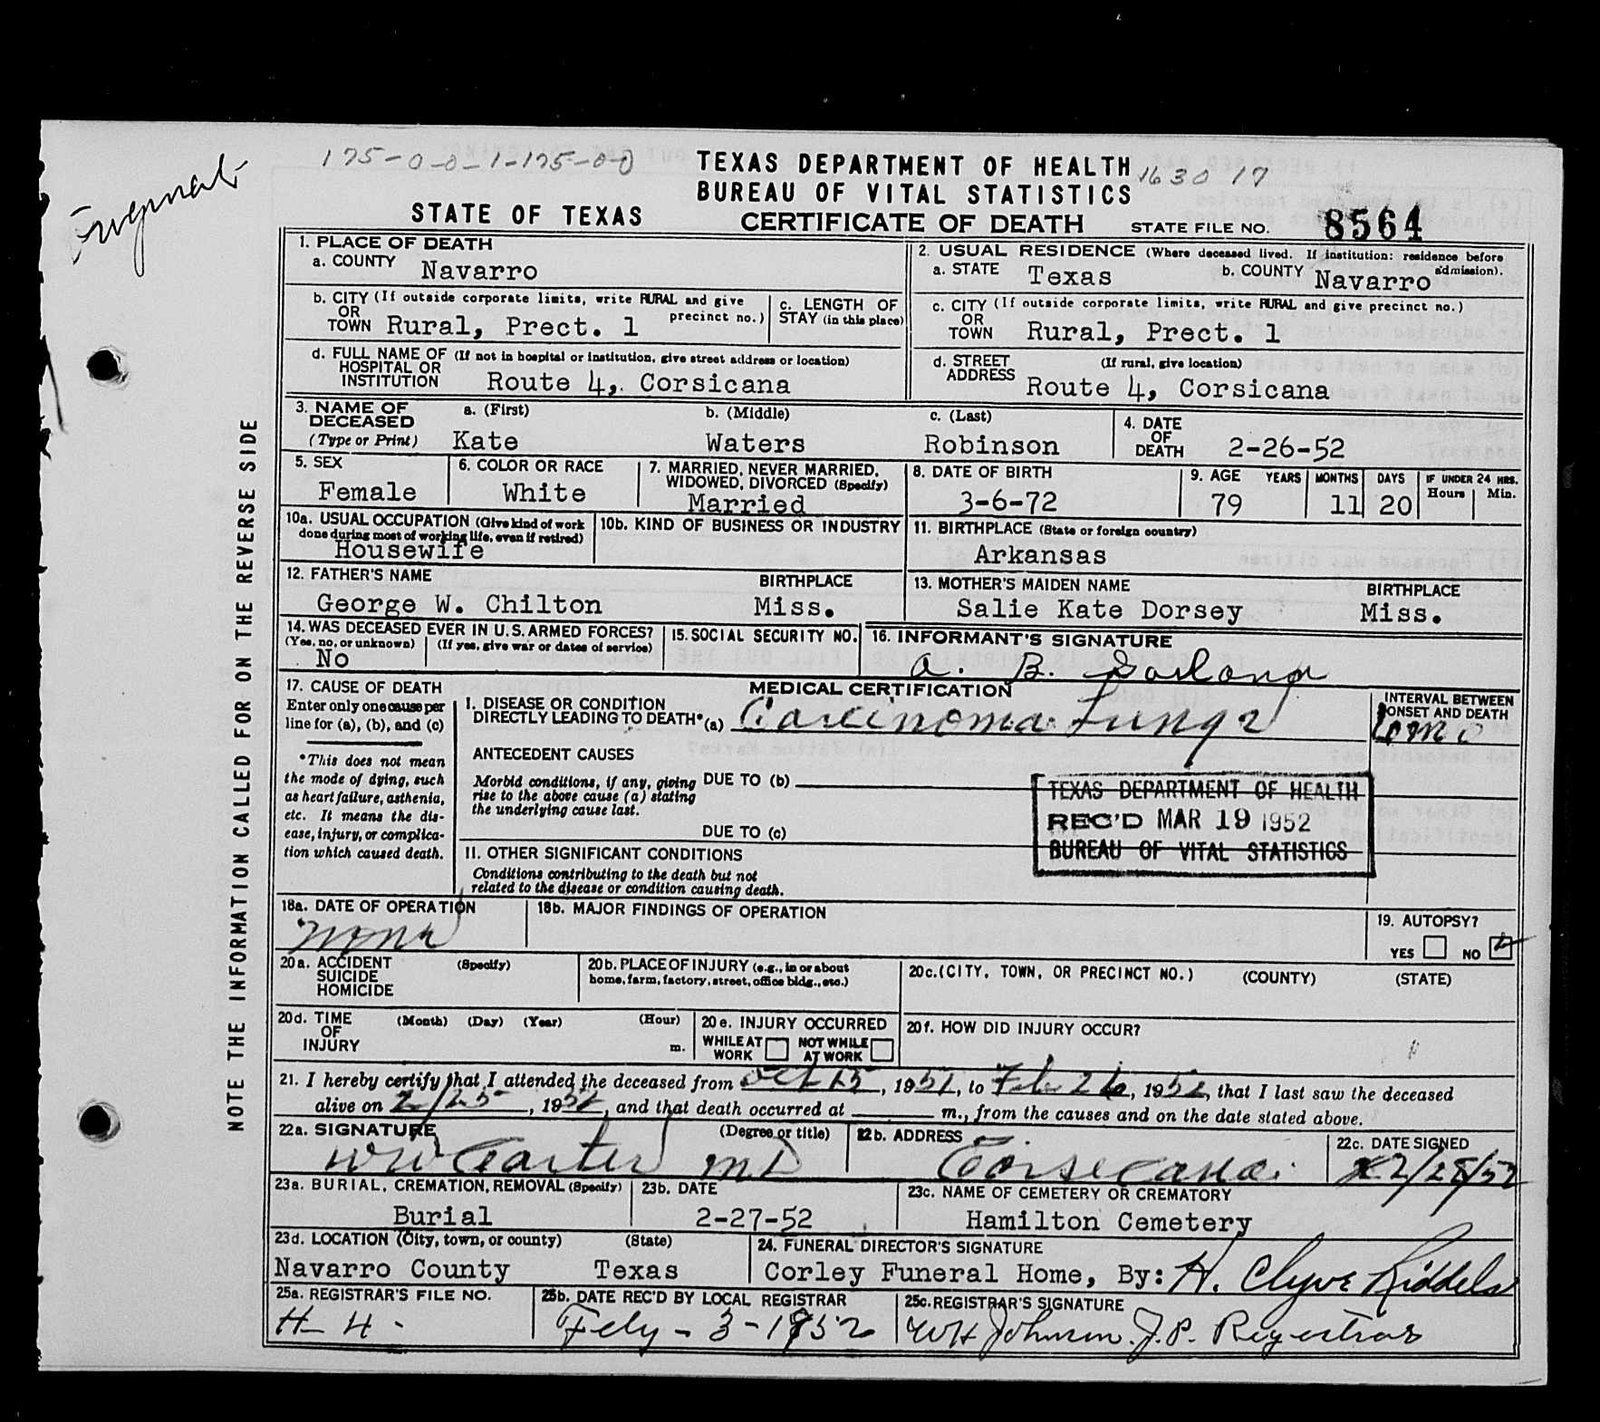 175-0-0-1-175-0-0
TEXAS DEPARTMENT OF HEALTH
BUREAU OF VITAL STATISTICS
1630 17
STATE OF TEXAS
CERTIFICATE OF DEATH
STATE FILE NO. 8564
NOTE THE INFORMATION CALLED FOR ON THE REVERSE SIDE
1. PLACE OF DEATH
a. COUNTY Navarro
2. USUAL RESIDENCE (Where deceased lived. If institution: residence before admission).
a. STATE Texas b. COUNTY Navarro
b. CITY (If outside corporate limits, write RURAL and give precinct no.)
OR
TOWN Rural, Prect. 1
c. LENGTH OF STAY (in this place)
c. CITY (If outside corporate limits, write RURAL and give precinct no.)
OR
TOWN Rural, Prect. 1
d. FULL NAME OF (If not in hospital or institution, give street address or location)
HOSPITAL OR
INSTITUTION Route 4, Corsicana
d. STREET (If rural, give location)
ADDRESS Route 4, Corsicana
3. NAME OF DECEASED (Type or Print)
a. (First) b. (Middle) c. (Last)
Kate Waters Robinson
4. DATE OF DEATH 2-26-52
5. SEX
Female
6. COLOR OR RACE
White
7. MARRIED, NEVER MARRIED, WIDOWED, DIVORCED (Specify)
Married
8. DATE OF BIRTH
3-6-72
9. AGE YEARS MONTHS DAYS IF UNDER 24 HRS. Hours Min.
79 11 20
10a. USUAL OCCUPATION (Give kind of work done during most of working life, even if retired)
Housewife
10b. KIND OF BUSINESS OR INDUSTRY
11. BIRTHPLACE (State or foreign country)
Arkansas
12. FATHER'S NAME BIRTHPLACE
George W. Chilton Miss.
13. MOTHER'S MAIDEN NAME BIRTHPLACE
Salie Kate Dorsey Miss.
14. WAS DECEASED EVER IN U.S. ARMED FORCES?
(Yes, no, or unknown) (If yes, give war or dates of service)
No
15. SOCIAL SECURITY NO.
16. INFORMANT'S SIGNATURE
A. B.
MEDICAL CERTIFICATION
17. CAUSE OF DEATH
Enter only one cause per
line for (a), (b), and (c)
*This does not mean
the mode of dying, such
as heart failure, asthenia,
etc. It means the dis-
ease, injury, or complica-
tion which caused death.
I. DISEASE OR CONDITION
DIRECTLY LEADING TO DEATH* (a) Carcinoma Lungs
INTERVAL BETWEEN
ONSET AND DEATH
ANTECEDENT CAUSES
Morbid conditions, if any, giving
rise to the above cause (a) stating
the underlying cause last.
DUE TO (b)
DUE TO (c)
II. OTHER SIGNIFICANT CONDITIONS
Conditions contributing to the death but not
related to the disease or condition causing death.
TEXAS DEPARTMENT OF HEALTH
REC'D MAR 19 1952
BUREAU OF VITAL STATISTICS
18a. DATE OF OPERATION
None
18b. MAJOR FINDINGS OF OPERATION
19. AUTOPSY?
YES NO
20a. ACCIDENT (Specify)
SUICIDE
HOMICIDE
20b. PLACE OF INJURY (e.g., in or about
home, farm, factory, street, office bldg., etc.)
20c. (CITY, TOWN, OR PRECINCT NO.) (COUNTY) (STATE)
20d. TIME (Month) (Day) (Year) (Hour)
OF
INJURY m.
20e. INJURY OCCURRED
WHILE AT WORK NOT WHILE AT WORK
20f. HOW DID INJURY OCCUR?
21. I hereby certify that I attended the deceased from Oct 15, 1951, to Feb 26, 1952, that I last saw the deceased
alive on 2/25, 1952, and that death occurred at m., from the causes and on the date stated above.
22a. SIGNATURE (Degree or title)
WW Carter MD
22b. ADDRESS
Corsicana
22c. DATE SIGNED
2/28/52
23a. BURIAL, CREMATION, REMOVAL (Specify)
Burial
23b. DATE
2-27-52
23c. NAME OF CEMETERY OR CREMATORY
Hamilton Cemetery
23d. LOCATION (City, town, or county) (State)
Navarro County Texas
24. FUNERAL DIRECTOR'S SIGNATURE
Corley Funeral Home, By: H. Clyve Riddels
25a. REGISTRAR'S FILE NO.
H-4-
25b. DATE REC'D BY LOCAL REGISTRAR
-3-1952
25c. REGISTRAR'S SIGNATURE
WH Johnson J.P. Registrar